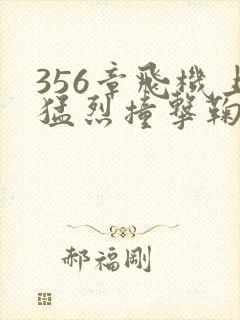 356章飛機上
猛烈撞擊鞠
郝福剛